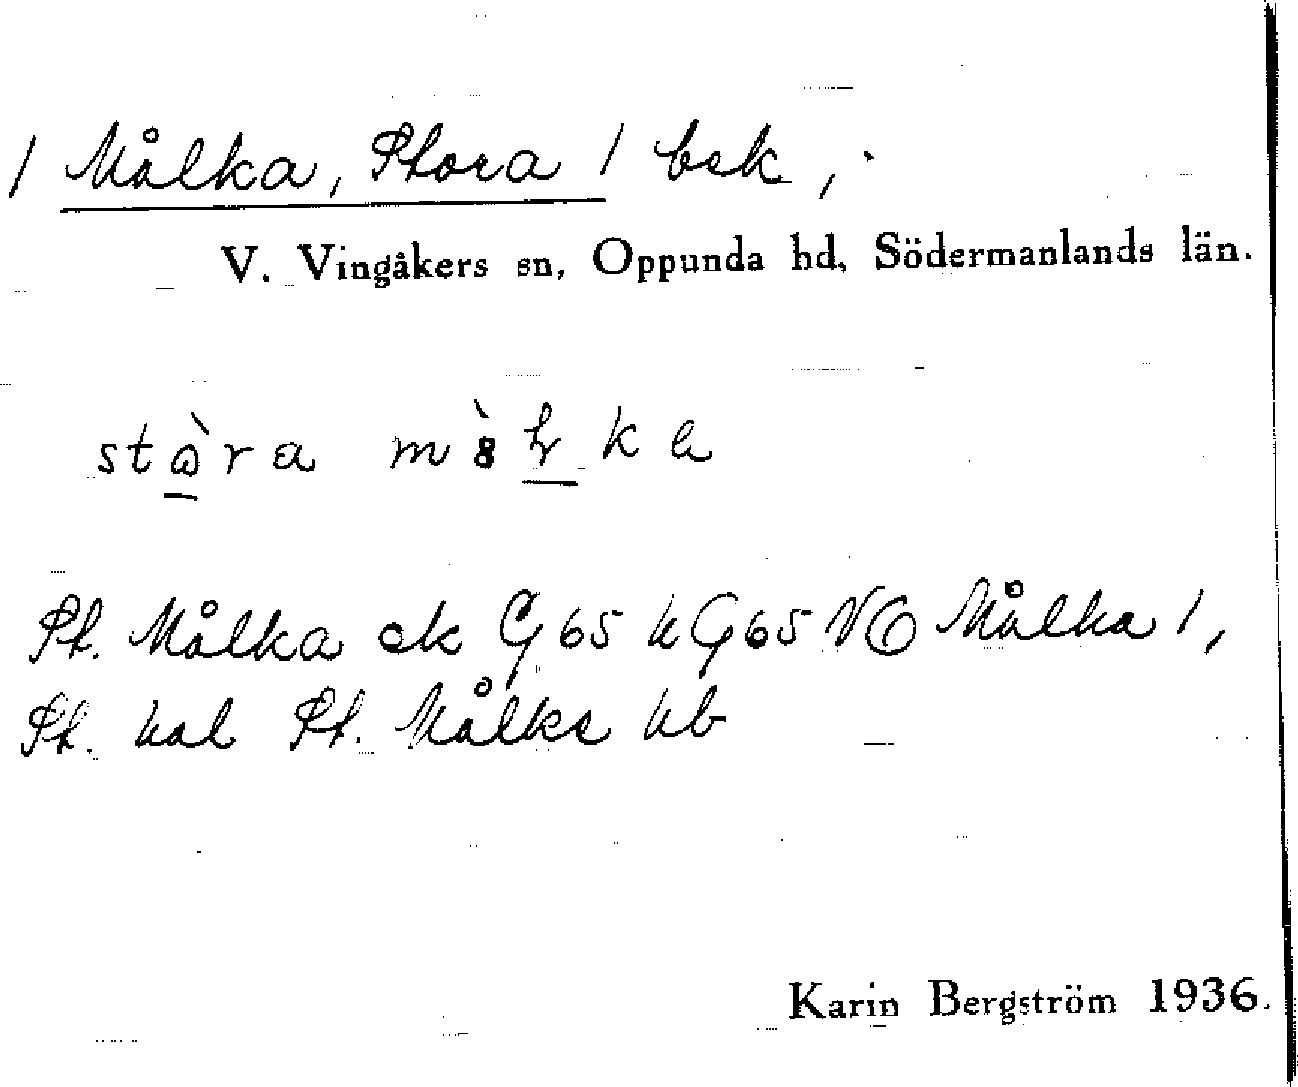 / Målka, Stora / bsk,
V. Vingåkers sn, Oppunda hd, Södermanlands län.
St. Målka ek G65 h G65 NO Målka /,
St. kal St. Målka hb
Karin Bergström 1936.